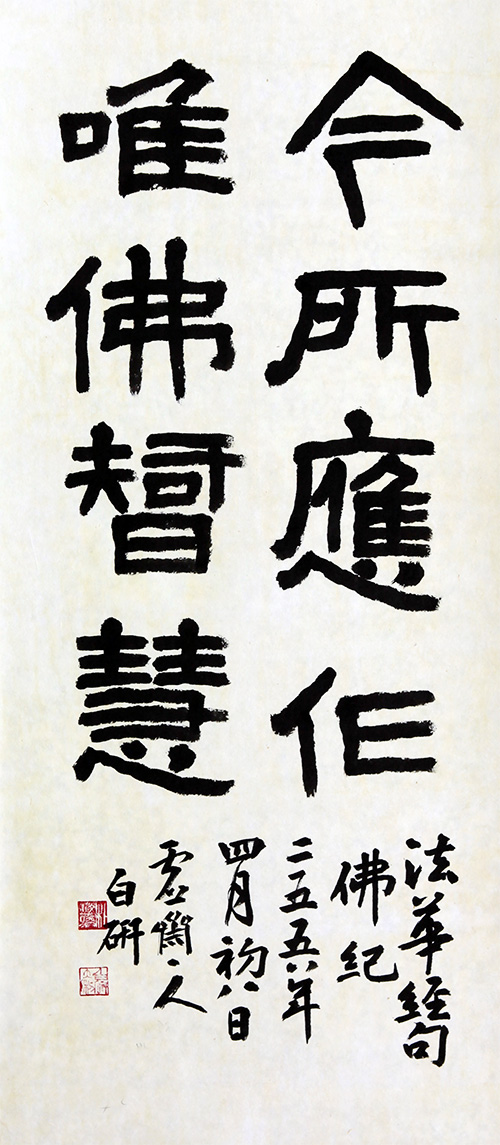 今所應作
唯佛智慧
法華經句
佛紀
二五五六年
四月初八日
人
白硏